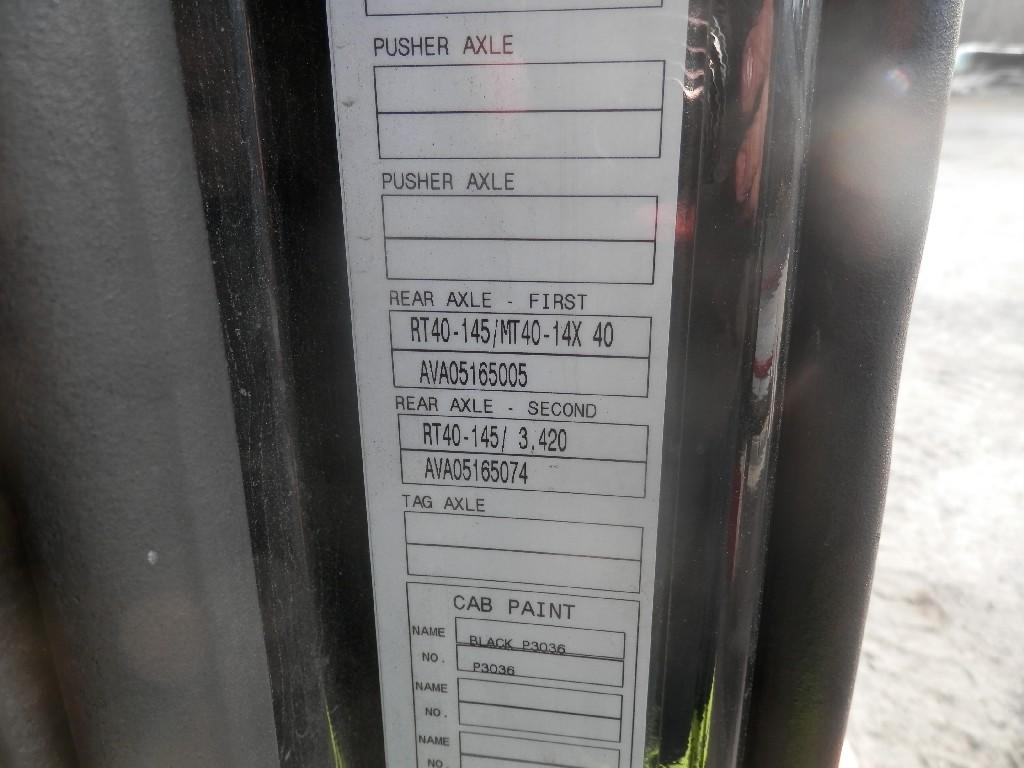 PUSHER AXLE
PUSHER AXLE
REAR AXLE - FIRST
RT40-145/MT40-14X 40
AVA05165005
REAR AXLE - SECOND
RT40-145/ 3,420
AVA05165074
TAG AXLE
CAB PAINT
NAME BLACK P3036
NO. P3036
NAME
NO.
NAME
NO.